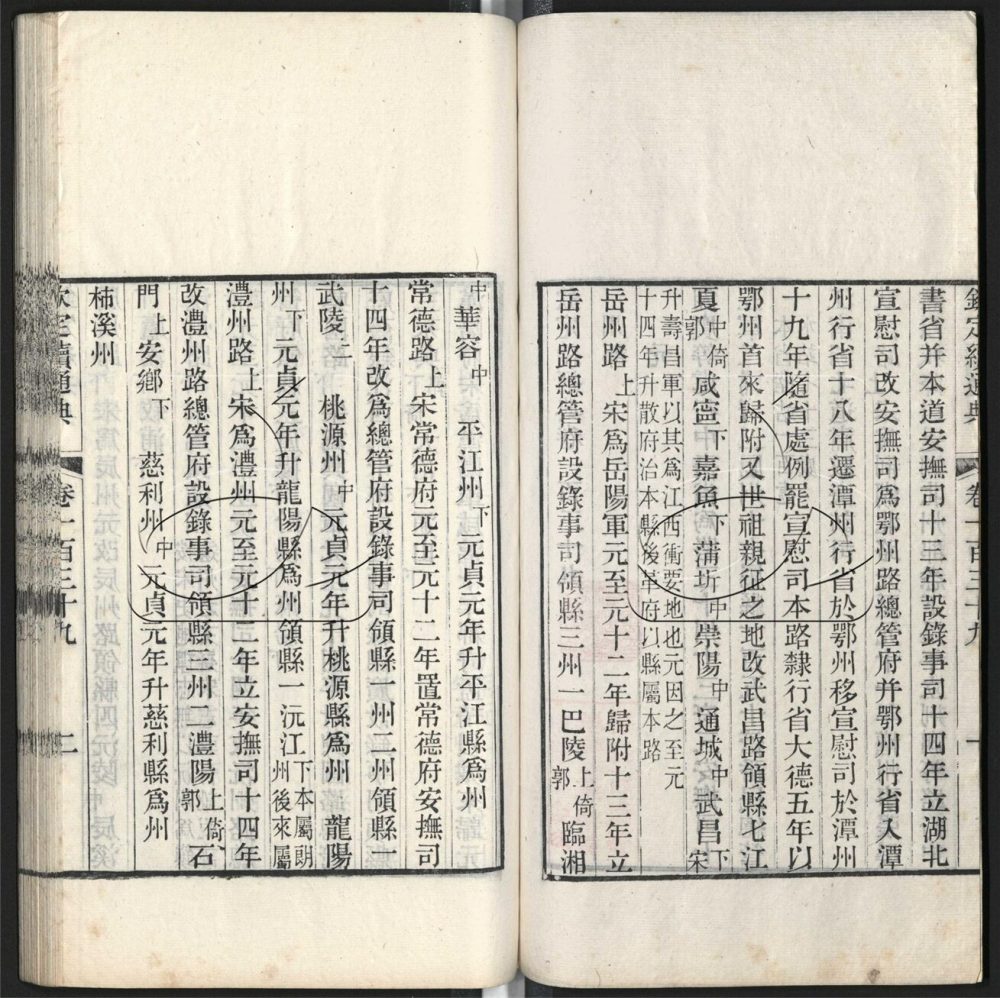 欽定續通典 卷一百三十九 一
書省并本道安撫司十三年設錄事司十四年立湖北
宣慰司改安撫司爲鄂州路總管府并鄂州行省入潭
州行省十八年遷潭州行省於鄂州移宣慰司於潭州
十九年隨省處例罷宣慰司本路隸行省大德五年以
鄂州首來歸附又世祖親征之地改武昌路領縣七江
夏中倚郭咸寧下嘉魚下蒲圻中崇陽中通城中武昌下宋
升壽昌軍以其爲江西衝要地也元因之至元
十四年升散府治本縣後革府以縣屬本路
岳州路上宋爲岳陽軍元至元十二年歸附十三年立
岳州路總管府設錄事司領縣三州一巴陵上倚郭臨湘
中華容中平江州下元貞元年升平江縣爲州
常德路上宋常德府元至元十二年置常德府安撫司
十四年改爲總管府設錄事司領縣一州二州領縣一
武陵上桃源州中元貞元年升桃源縣爲州龍陽
州下元貞元年升龍陽縣爲州領縣一沅江下本屬朗州後來屬
澧州路上宋爲澧州元至元十二年立安撫司十四年
改澧州路總管府設錄事司領縣三州二澧陽上倚郭石
門上安鄉下慈利州中元貞元年升慈利縣爲州
柿溪州
欽定續通典 卷一百三十九 二